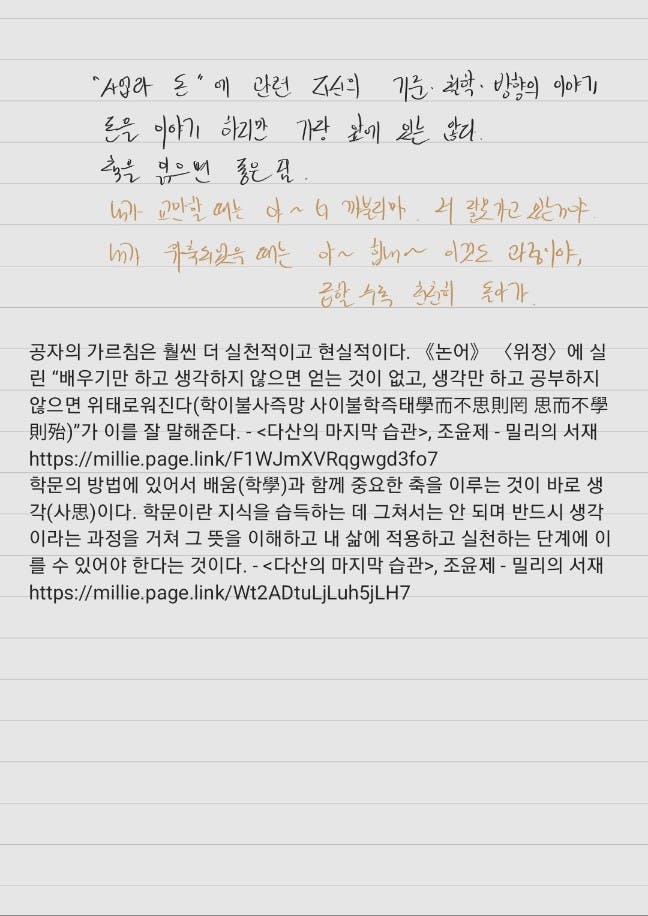 "사업과 돈"에 관련 자신의 기준·철학·방향의 이야기
돈을 이야기 하지만 가장 앞에 있는 않다.
책을 읽으면 좋은 점.
내가 교만할 때는 아~ 너 까불리마. 너 잘못가고 있는거야.
내가 위축되었을 때는 아~ 힘내~ 이것도 과정이야,
급할 수록 천천히 돌아가.
공자의 가르침은 훨씬 더 실천적이고 현실적이다. 《논어》 〈위정〉에 실
린 “배우기만 하고 생각하지 않으면 얻는 것이 없고, 생각만 하고 공부하지
않으면 위태로워진다(학이불사즉망 사이불학즉태學而不思則罔 思而不學
則殆)”가 이를 잘 말해준다. - <다산의 마지막 습관>, 조윤제 - 밀리의 서재
https://millie.page.link/F1WJmXVRqgwgd3fo7
학문의 방법에 있어서 배움(학學)과 함께 중요한 축을 이루는 것이 바로 생
각(사思)이다. 학문이란 지식을 습득하는 데 그쳐서는 안 되며 반드시 생각
이라는 과정을 거쳐 그 뜻을 이해하고 내 삶에 적용하고 실천하는 단계에 이
를 수 있어야 한다는 것이다. - <다산의 마지막 습관>, 조윤제 - 밀리의 서재
https://millie.page.link/Wt2ADtuLjLuh5jLH7